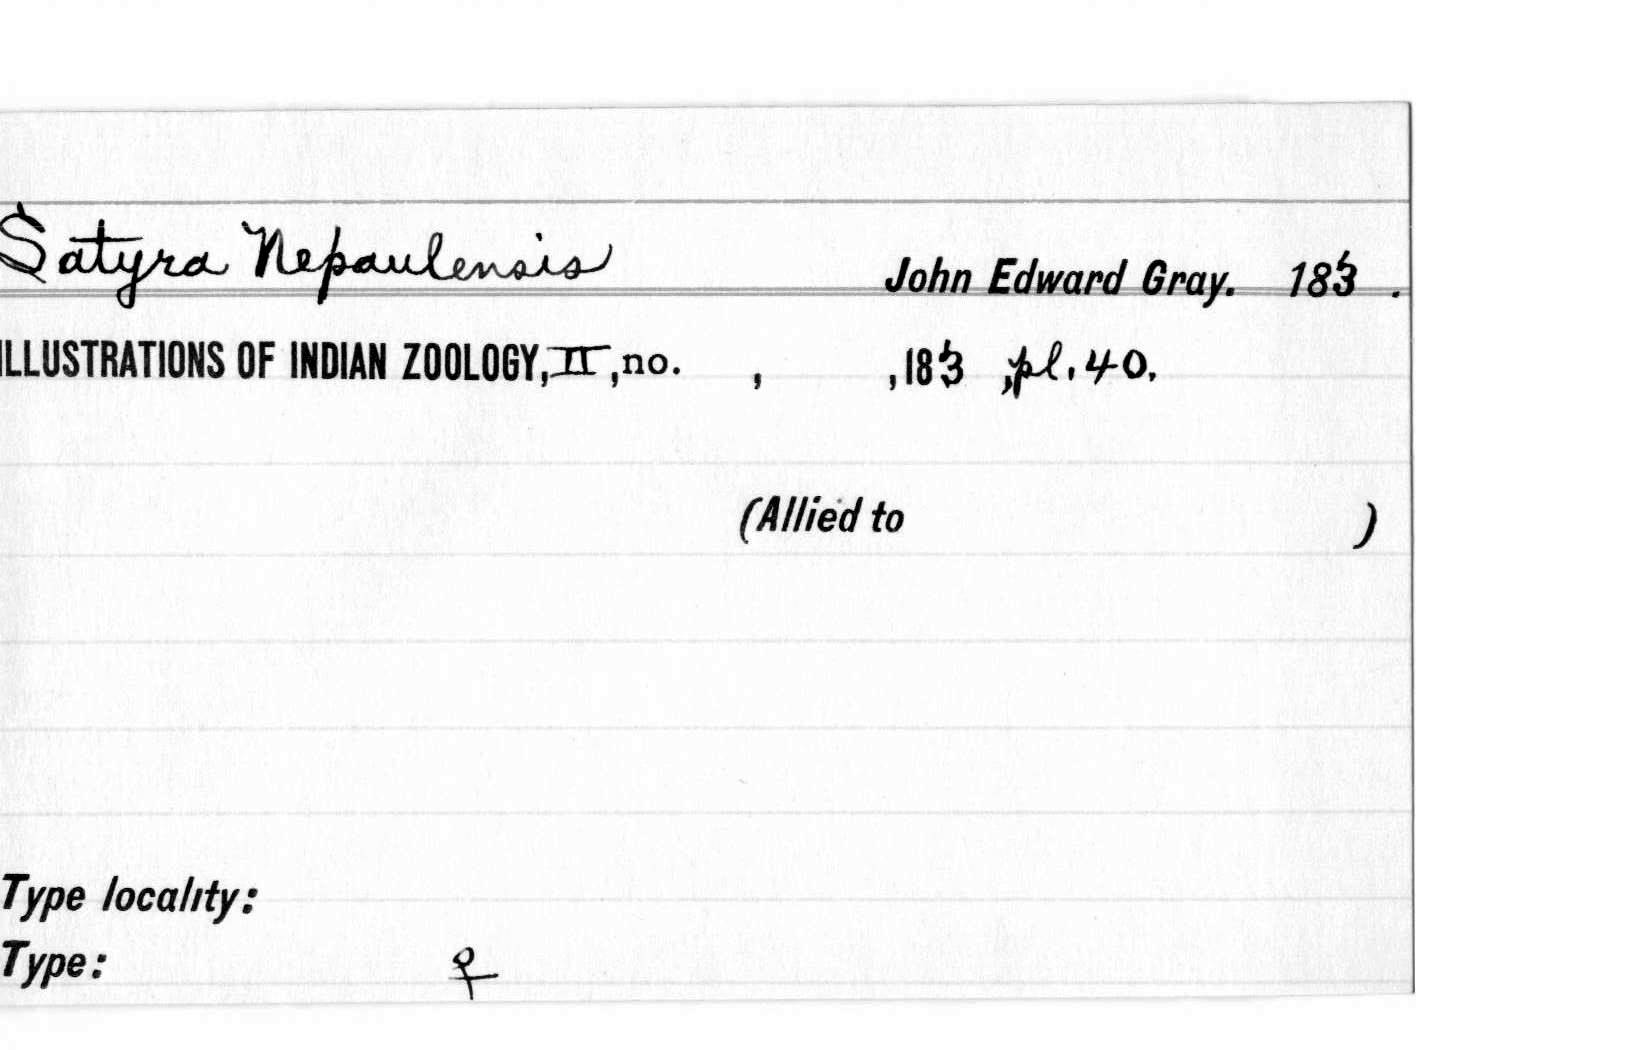 Satyra Nepaulensis John Edward Gray. 183 .
ILLUSTRATIONS OF INDIAN ZOOLOGY, II, no. , , 183 , pl. 40.
(Allied to )
Type locality:
Type: ♀